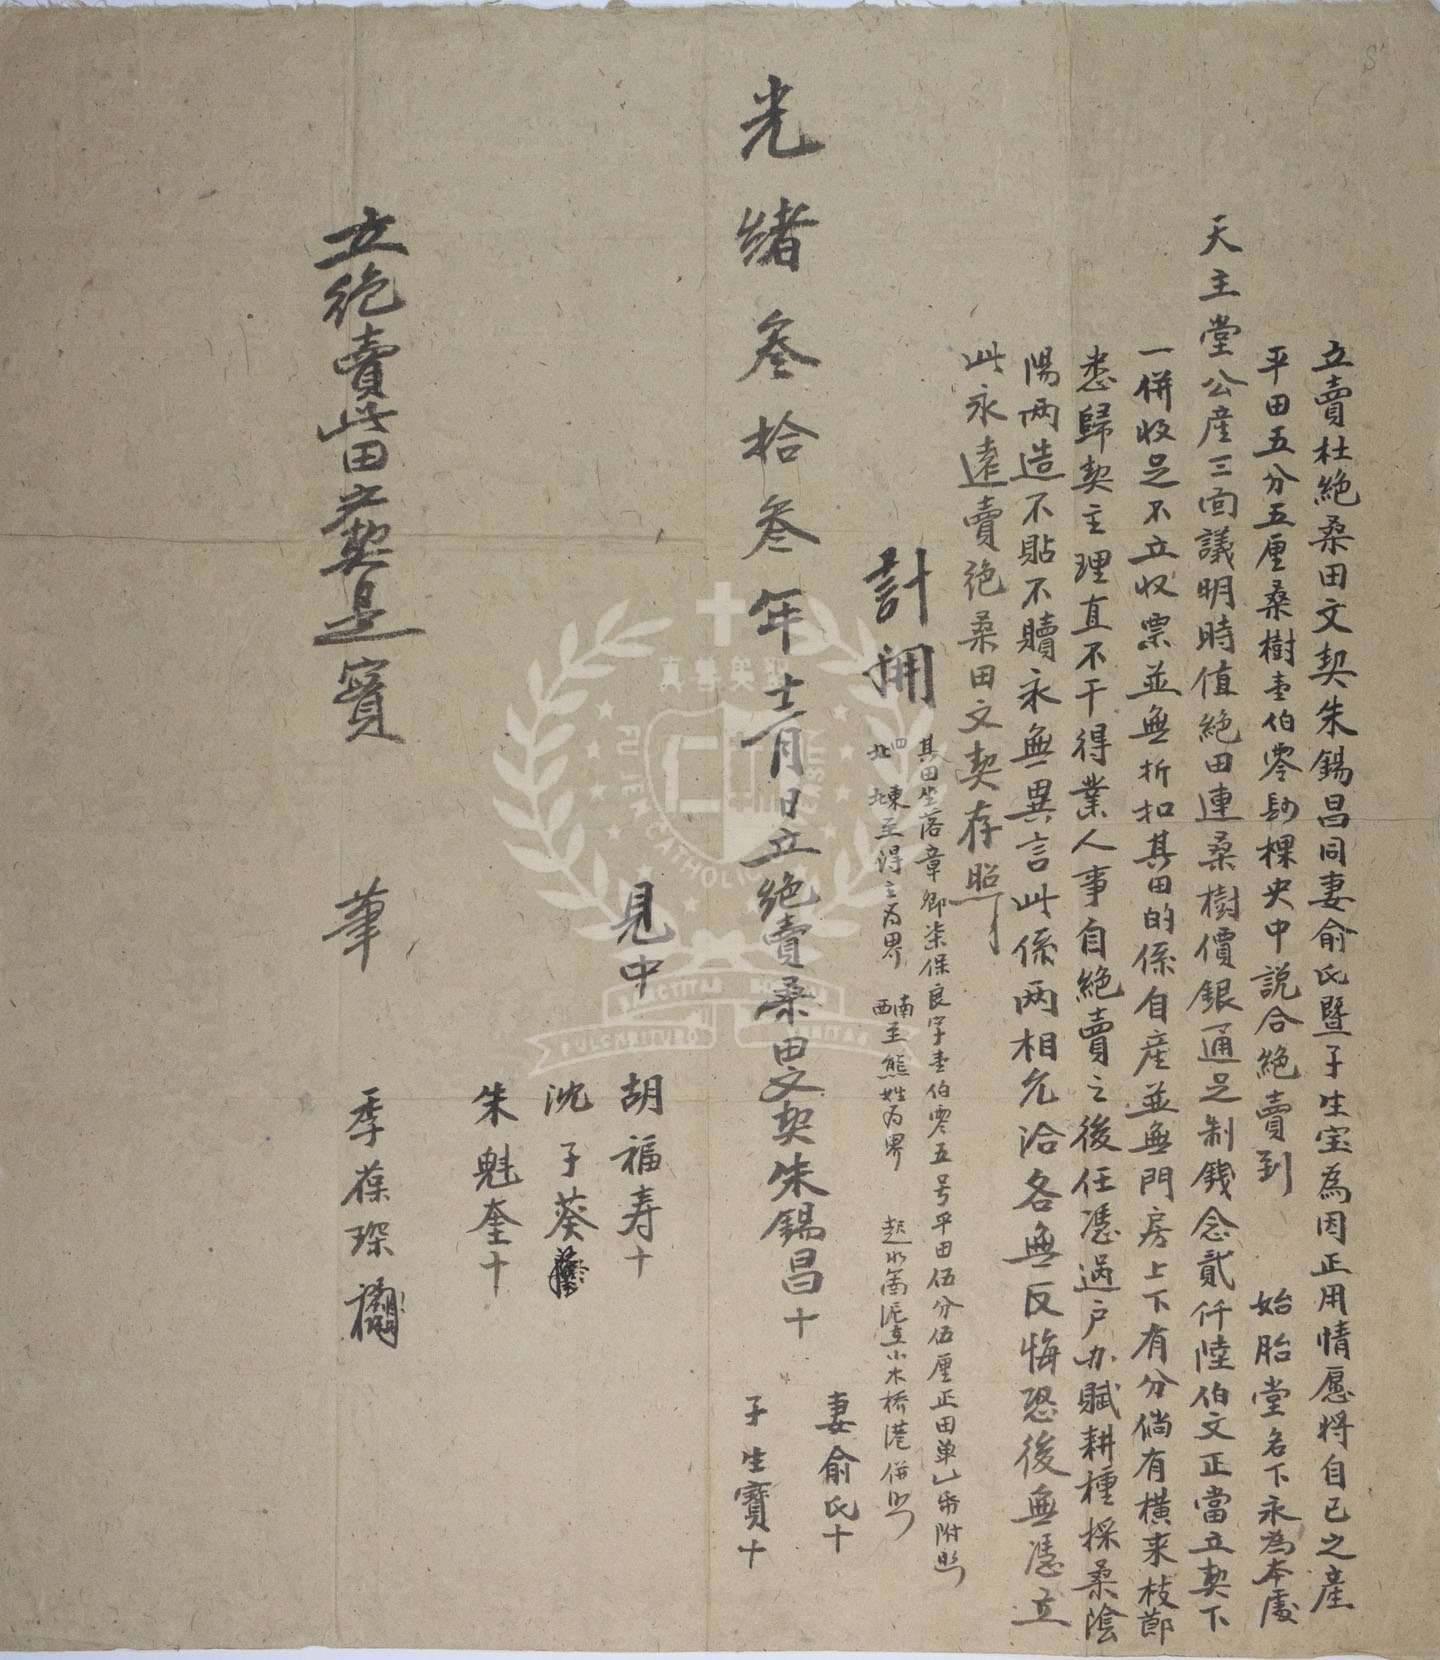 立賣杜絕桑田文契朱錫昌同妻俞氏暨子生宝為因正用情愿將自己之產
平田五分五厘桑樹壹伯零肆棵央中說合絕賣到 始胎堂名下永為本處
天主堂公產三面議明時值絕田連桑樹價銀通足制錢念貳仟陸伯文正當立契下
一併收足不立收票並無折扣其田的係自產並無門房上下有分倘有橫來枝節
悉歸契主理直不干得業人事自絕賣之後任憑過户办賦耕種採桑陰
陽两造不貼不贖永無異言此係两相允洽各無反悔恐後無憑立
此永遠賣絕桑田文契存照
計拥
其田坐落章鄉柒保良字壹伯零五号平田伍分伍厘正田单乚帋附照
四址 東北至得主為界 南西至熊姓為界 起水南泥至小木橋港併照
光緒叁拾叁年十二月日立絕賣桑田文契朱錫昌十
妻俞氏十
子生寶十
見中 胡福寿十
沈子葵
朱魁奎十
立絕賣此田文契是實 筆 季葆琛
S'
真善美聖
FU JEN CATHOLIC UNIVERSITY
SANCTITAS BONITAS
PULCHRITUDO VERITAS